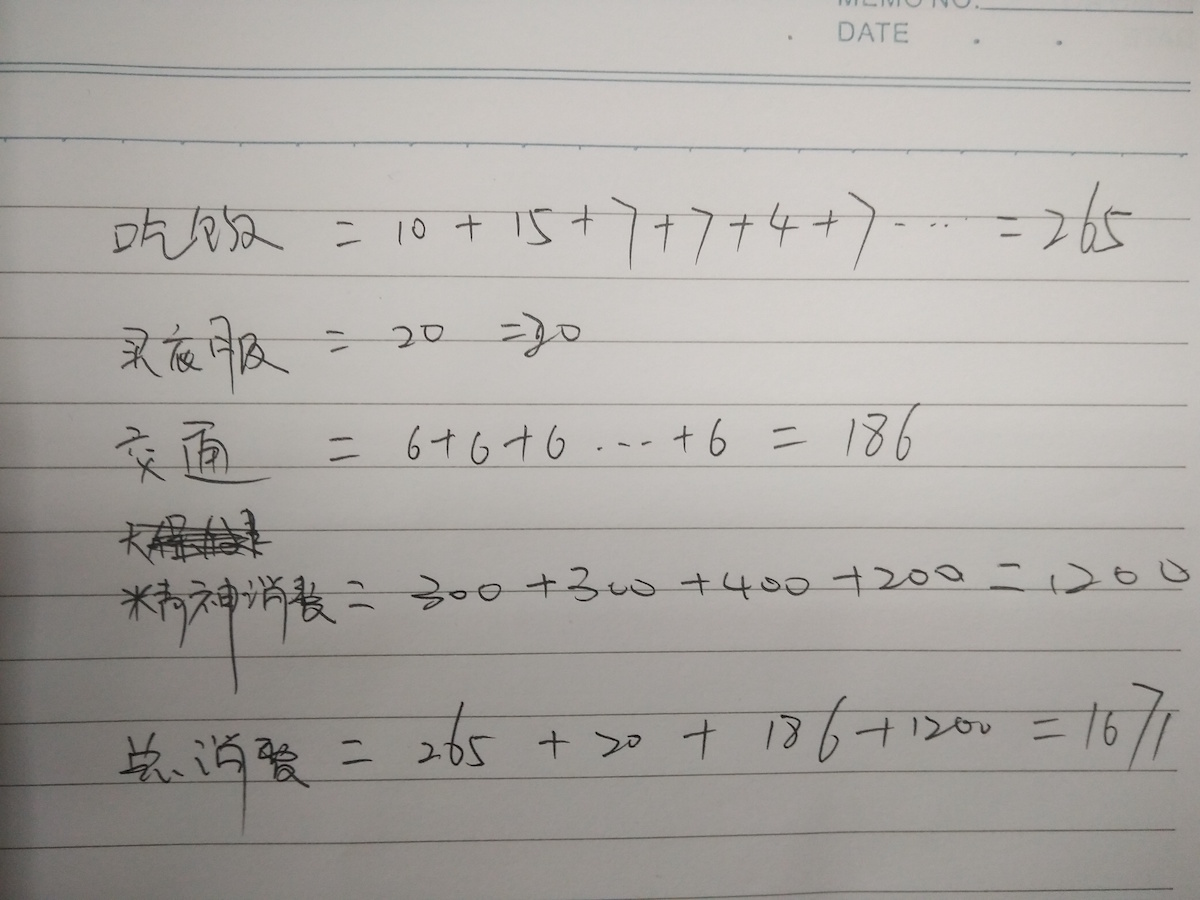 MEMO NO.
DATE
吃饭 = 10 + 15 + 7 + 7 + 4 + 7 ----- = 265
买衣服 = 20 = 20
交通 = 6 + 6 + 6 ... + 6 = 186
精神消费 = 300 + 300 + 400 + 200 = 1200
总消费 = 265 + 20 + 186 + 1200 = 1671